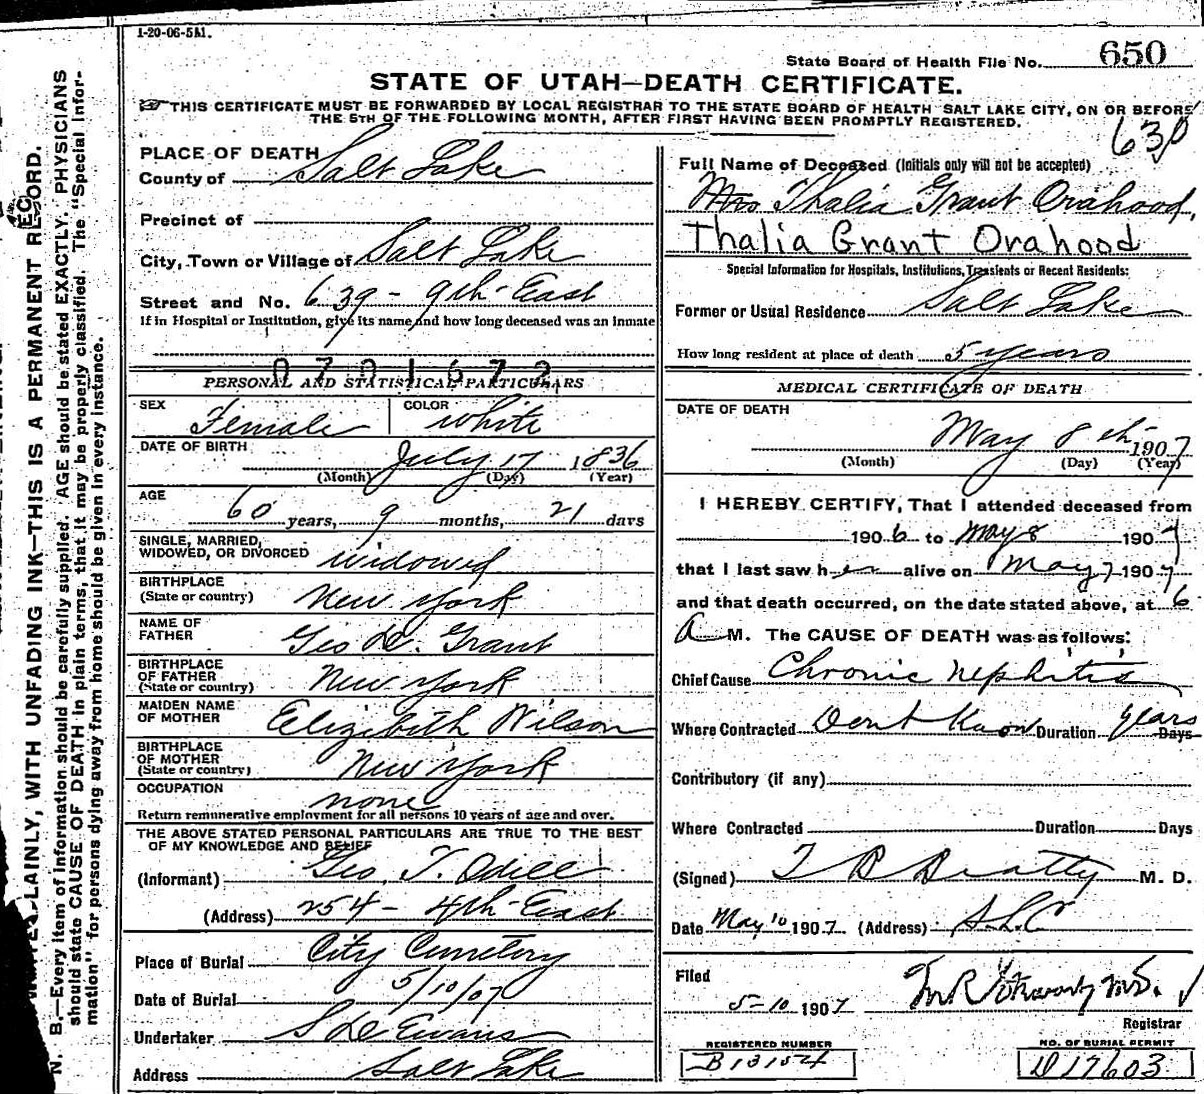 1-20-06-5M.
State Board of Health File No. 650
STATE OF UTAH—DEATH CERTIFICATE.
THIS CERTIFICATE MUST BE FORWARDED BY LOCAL REGISTRAR TO THE STATE BOARD OF HEALTH SALT LAKE CITY, ON OR BEFORE
THE 5TH OF THE FOLLOWING MONTH, AFTER FIRST HAVING BEEN PROMPTLY REGISTERED.
PLACE OF DEATH
County of Salt Lake
Precinct of
City, Town or Village of Salt Lake
Street and No. 639 - 9th East
If in Hospital or Institution, give its name and how long deceased was an inmate
PERSONAL AND STATISTICAL PARTICULARS
SEX Female COLOR White
DATE OF BIRTH July 17 1836
(Month) (Day) (Year)
AGE 60 years, 9 months, 21 days
SINGLE, MARRIED,
WIDOWED, OR DIVORCED widowed
BIRTHPLACE
(State or country) New York
NAME OF
FATHER Geo D. Grant
BIRTHPLACE
OF FATHER
(State or country) New York
MAIDEN NAME
OF MOTHER Elizibith Wilson
BIRTHPLACE
OF MOTHER
(State or country) New York
OCCUPATION none
Return remunerative employment for all persons 10 years of age and over.
THE ABOVE STATED PERSONAL PARTICULARS ARE TRUE TO THE BEST
OF MY KNOWLEDGE AND BELIEF
(Informant) Geo. T. Odell
(Address) 254 - 4th East
Place of Burial City Cemetery
Date of Burial 5/10/07
Undertaker S D Evans
Address Salt Lake
63
Full Name of Deceased (Initials only will not be accepted)
Mrs Thalia Grant Orahood
Thalia Grant Orahood
Special Information for Hospitals, Institutions, Transients or Recent Residents:
Former or Usual Residence Salt Lake
How long resident at place of death 5 years
MEDICAL CERTIFICATE OF DEATH
DATE OF DEATH
May 8th 1907
(Month) (Day) (Year)
I HEREBY CERTIFY, That I attended deceased from
1906 to May 8 1907
that I last saw her alive on May 7 1907
and that death occurred, on the date stated above, at 6
A M. The CAUSE OF DEATH was as follows:
Chief Cause Chronic Nephritis
Where Contracted Dont Know Duration years Days
Contributory (if any)
Where Contracted Duration Days
(Signed) T B Beatty M. D.
Date May 10 1907 (Address) S.L.C
Filed
5-10 1907 M.D.
Registrar
REGISTERED NUMBER
B13154
NO. OF BURIAL PERMIT
D17603
LAINLY, WITH UNFADING INK—THIS IS A PERMANENT RECORD.
N. B.—Every item of information should be carefully supplied. AGE should be stated EXACTLY. PHYSICIANS
should state CAUSE OF DEATH in plain terms, that it may be properly classified. The "Special Infor-
mation" for persons dying away from home should be given in every instance.